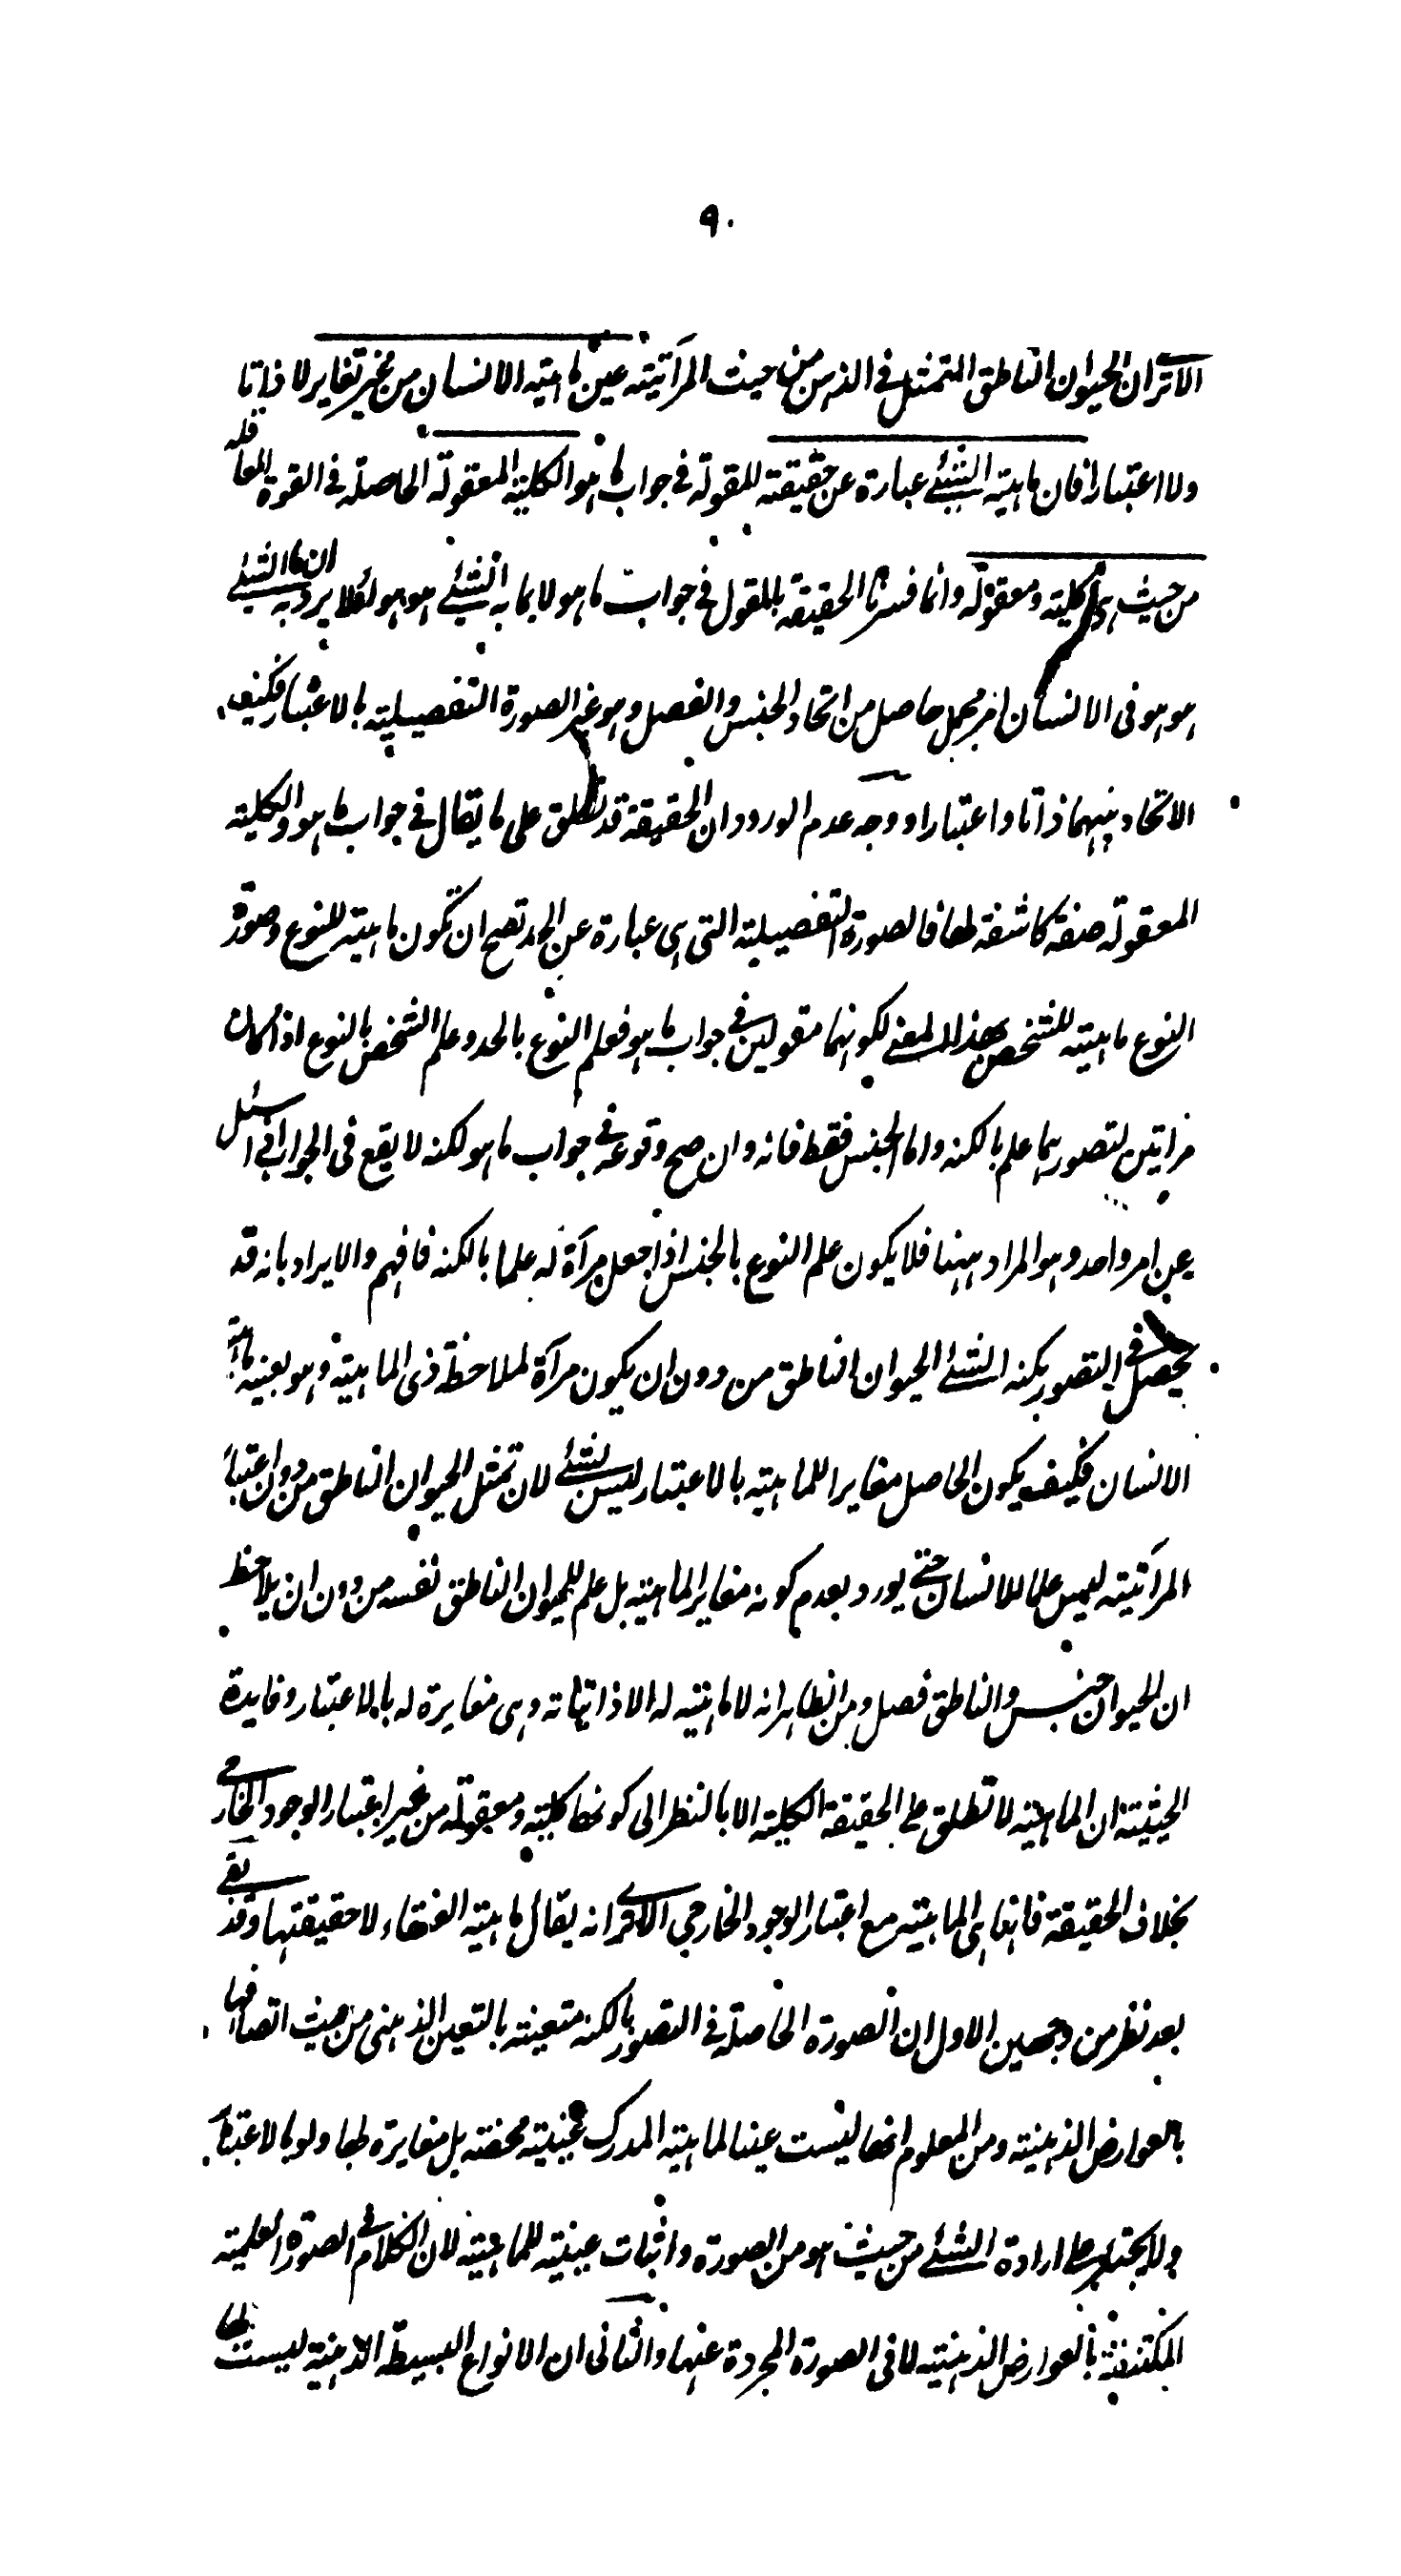 ٩٠
الا ترى ان الحيوان الناطق المتمثل فى الذهن من حيث المرآتية عين ماهية الانسان من غير تغاير لا ذاتا
ولا اعتبارا فان ماهية الشئ عبارة عن حقيقته المقولة فى جواب ما هو الكلية المعقولة الحاصلة فى القوة العاقلة
من حيث هى كلية ومعقولة وانما فسرنا الحقيقة بالمقول فى جواب ما هو لا بما به الشئ هو هو لئلا يرد به ان ما به الشئ
هو هو فى الانسان امر مجمل حاصل من اتحاد الجنس والفصل وهو غير الصورة التفصيلية بالاعتبار فكيف
الاتحاد بينهما ذاتا واعتبارا ووجه عدم الورود ان الحقيقة قد تطلق على ما يقال فى جواب ما هو والكلية
المعقولة صفة كاشفة لها فالصورة التفصيلية التى هى عبارة عن الحد تصح ان تكون ماهية للنوع وصورة
النوع ماهية للشخص بهذا المعنى لكونهما مقولين فى جواب ما هو فعلم النوع بالحد وعلم الشخص بالنوع اذا كان
مرآتين لتصورهما علم بالكنه واما الجنس فقط فانه وان صح وقوعه فى جواب ما هو لكنه لا يقع فى الجواب اذا سئل
عن امر واحد وهو المراد ههنا فلا يكون علم النوع بالجنس اذا جعل مرآة له علما بالكنه فافهم والايراد بانه قد
يحصل فى التصور بكنه الشئ الحيوان الناطق من دون ان يكون مرآة لملاحظة ذى الماهية وهو بعينه ماهية
الانسان فكيف يكون الحاصل مغايرا للماهية بالاعتبار ليس بشئ لان تمثل الحيوان الناطق من دون اعتبار
المرآتية ليس علما للانسان حتى يورد بعدم كونه مغايرا لماهية بل علم للحيوان الناطق نفسه من دون ان يلاحظ
ان الحيوان جنس والناطق فصل ومن الظاهر انه لا ماهية له الا ذاتياته وهى مغايرة له بالاعتبار وفايدة
الحيثية ان الماهية لا تطلق على الحقيقة الكلية الا بالنظر الى كونها كلية ومعقولة من غير اعتبار الوجود الخارجى
بخلاف الحقيقة فانها هى الماهية مع اعتبار الوجود الخارجى الا ترى انه يقال ماهية العنقاء لا حقيقتها وقد بقى
بعد نظر من وجهين الاول ان الصورة الحاصلة فى التصور بالكنه متعينة بالتعين الذهنى من حيث اتصافها
بالعوارض الذهنية ومن المعلوم انها ليست عينا لماهية المدرك عينية محضة بل مغايرة لها ولو بالاعتبار
ولا يجترئ على ارادة الشئ من حيث هو من الصورة واثبات عينية للماهية لان الكلام فى الصورة العلمية
المكتنفة بالعوارض الذهنية لا فى الصورة المجردة عنها والثانى ان الانواع البسيطة الذهنية ليست لها